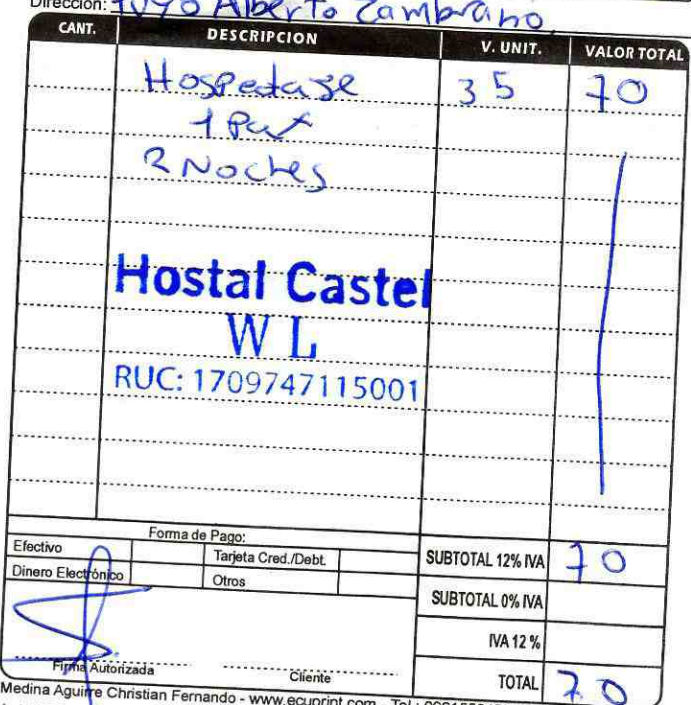 Dirección: Puyo Alberto Zambrano
CANT. DESCRIPCION V. UNIT. VALOR TOTAL
Hospedaje 35 70
1 Pax
2 Noches
Hostal Castel
W L
RUC: 1709747115001
Forma de Pago:
Efectivo Tarjeta Cred./Debt. SUBTOTAL 12% IVA 70
Dinero Electrónico Otros SUBTOTAL 0% IVA
IVA 12 %
Firma Autorizada Cliente TOTAL 70
Medina Aguirre Christian Fernando - www.ecuprint.com